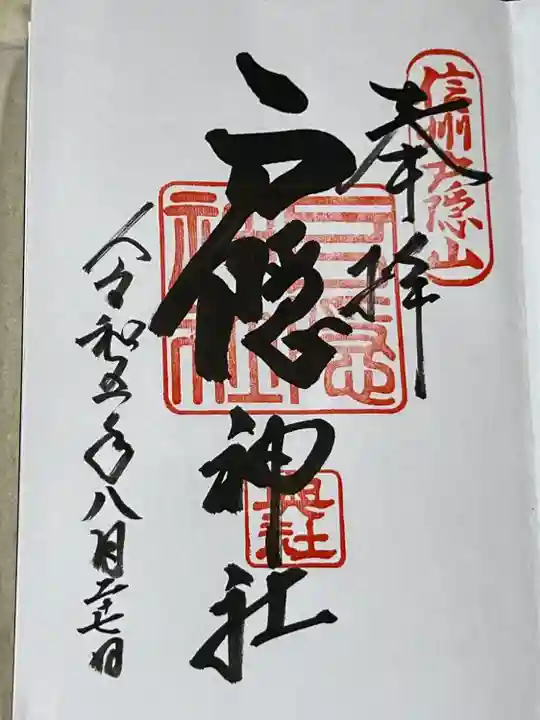 信州戸隠山
奉拝
戸隠神社
奥社
令和五年八月二十七日